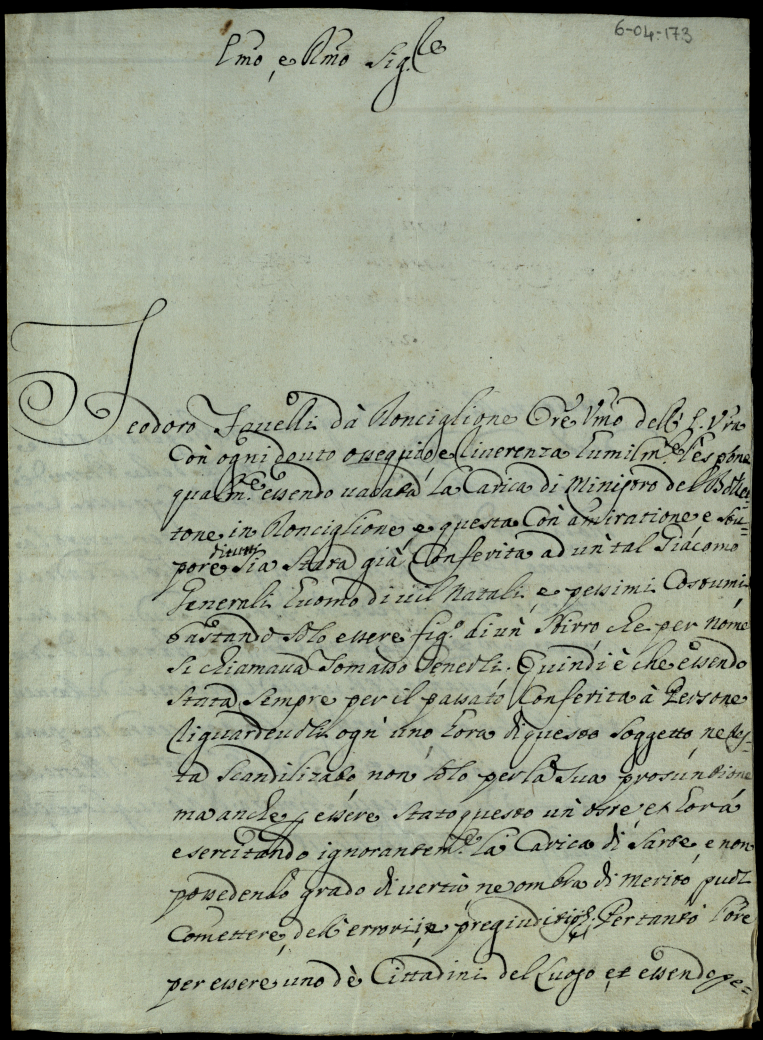 6-04-173
Emo, e Rmo Sig.re
Teodoro Favelli da Ronciglione Ore Umo dell' E. Vra
Con ogni douto ossequio, e riverenza humilm.te l'espone
qualm.te essendo uacata la Carica di Ministro del Bolle-
tone in Ronciglione, e questa Con amiratione e stu-
pore di tutti sia stata già Conferita ad un tal Giacomo
Generali huomo di uil Natali, e pessimi Costumi
bastando solo essere fig.o di un Sbirro che per nome
si chiamaua Tomasso Generali. Quindi è che essendo
stata sempre per il passato Conferita à Persone
riguardeuoli ogn' uno hora di questo soggetto ne res-
ta scandilizato non solo per la sua prosuntione
ma anche p essere stato questo un Oste, et hora
esercitando ignorantem.te la Carica di Sarte, e non
possedendo grado di vertù ne ombra di merito puol
Comettere, dell' errori, e pregiuditij. Per tanto l'Ore
per essere uno de Cittadini del Luogo et essendo pe-